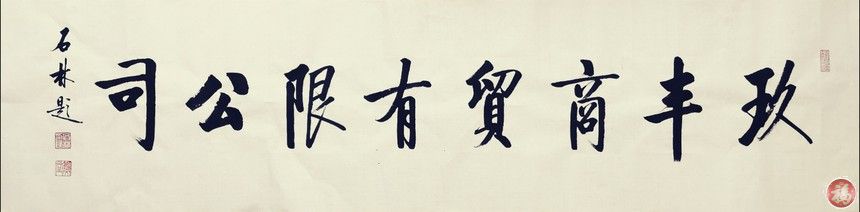 玖丰商貿有限公司
石林题
福